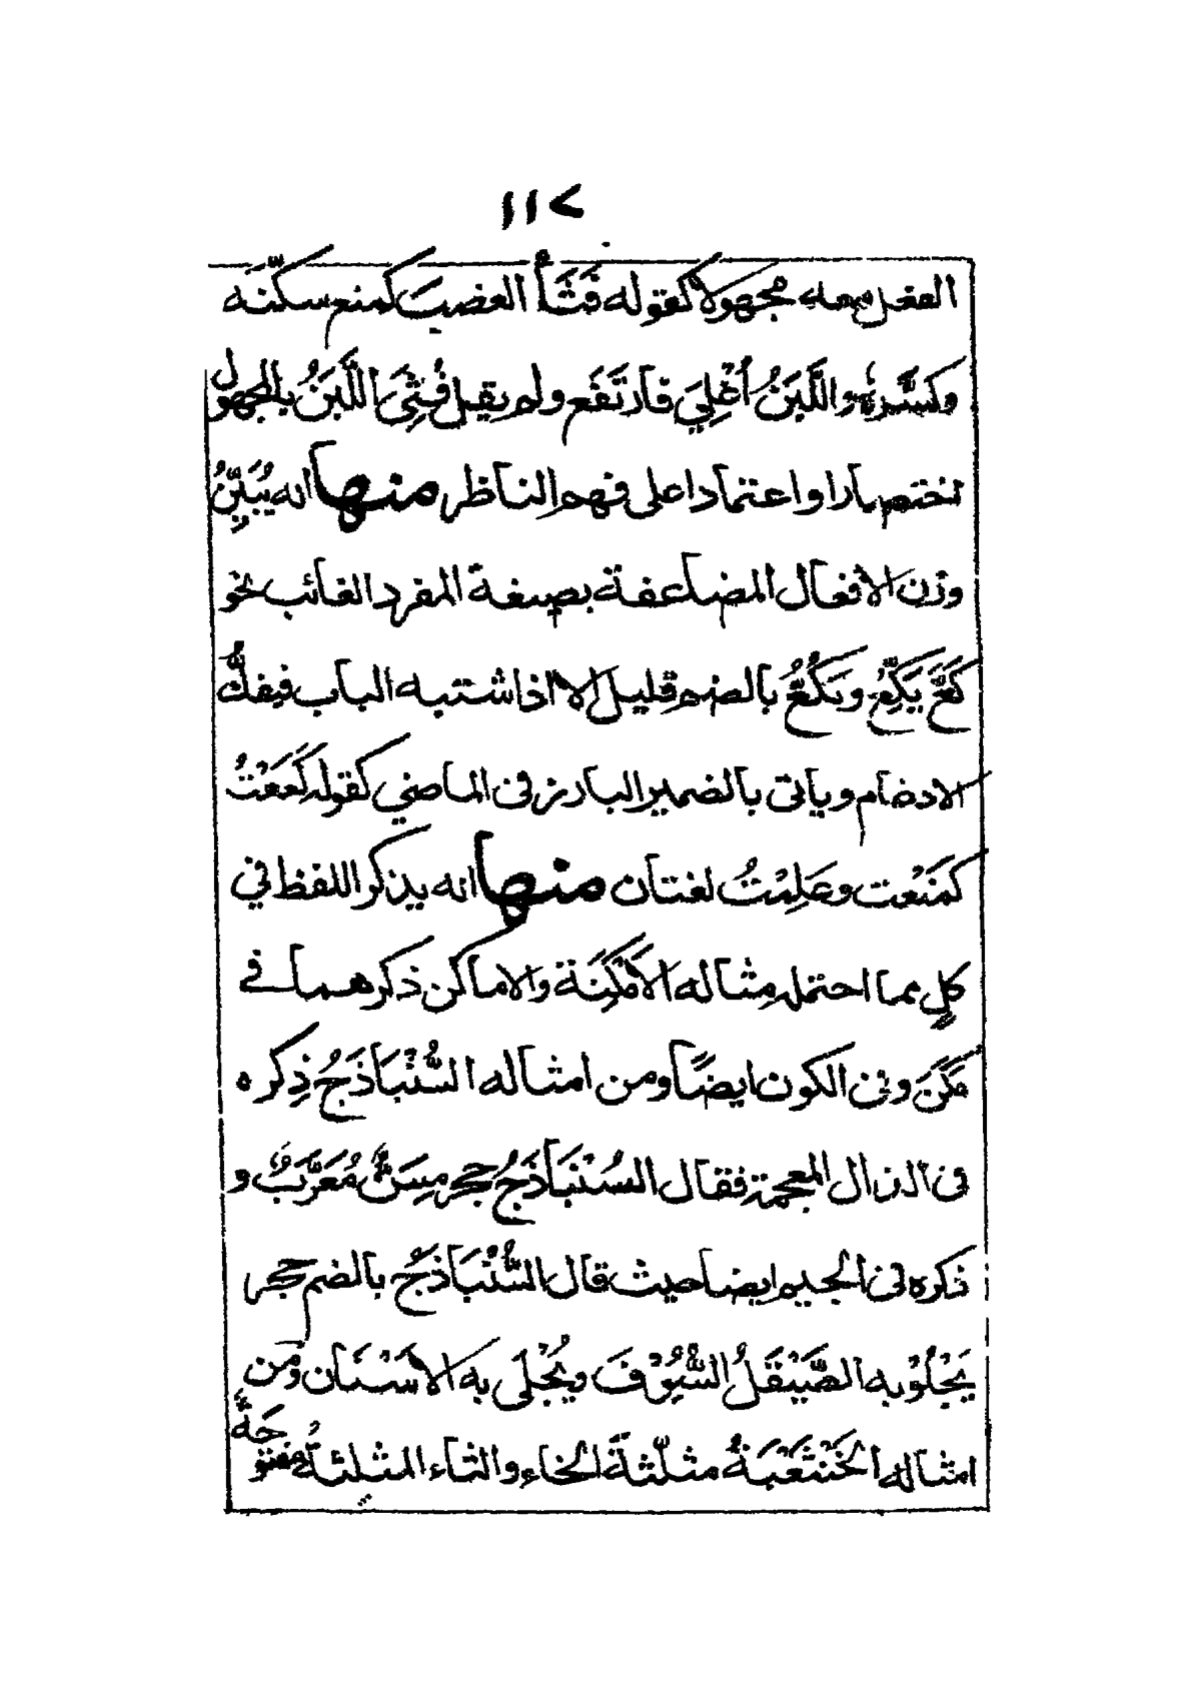 ١١٢
الفعل معه مجهولا كقوله فَثَأَ الغضبَ كمنع سكّنَه
وكسَّرهُ واللَّبَنُ أُغْلِيَ فارتَفَع ولم يقل فُثِئَ اللَّبَنُ بالمجهول
اختصارا واعتمادا على فهم الناظر منها انه يُبَيِّنُ
وزن الافعال المضاعفة بصيغة المفرد الغائب نحو
كَعَّ يَكِعُّ ويَكُعُّ بالضم قليل الا اذا اشتبه الباب فيفكُّ
الادغام وياتى بالضمير البارز فى الماضي كقوله كَعَعْتُ
كمَنَعْت وعَلِمْتُ لغتان منها انه يذكر اللفظ في
كلٍ مما احتمله مثاله الأَمْكِنَة والاماكن ذكرهما في
مَكَنَ وفى الكون ايضاً ومن امثاله السُّنْبَاذَجُ ذِكره
فى الذال المعجمة فقال السُنْبَاذَجُ حجر مِسَنٌّ مُعَرَّبٌ و
ذكره فى الجيم ايضا حيث قال السُّنْبَاذَجُ بالضم حجر
يَجْلُوْ به الصَّيْقَلُ السُّيُوْفَ ويُجْلَى به الاسْنَان ومن
امثاله الخَنْثَعْبَةُ مثلّثةَ الخاء والثاء المثلثةُ مفتوحَةٌ